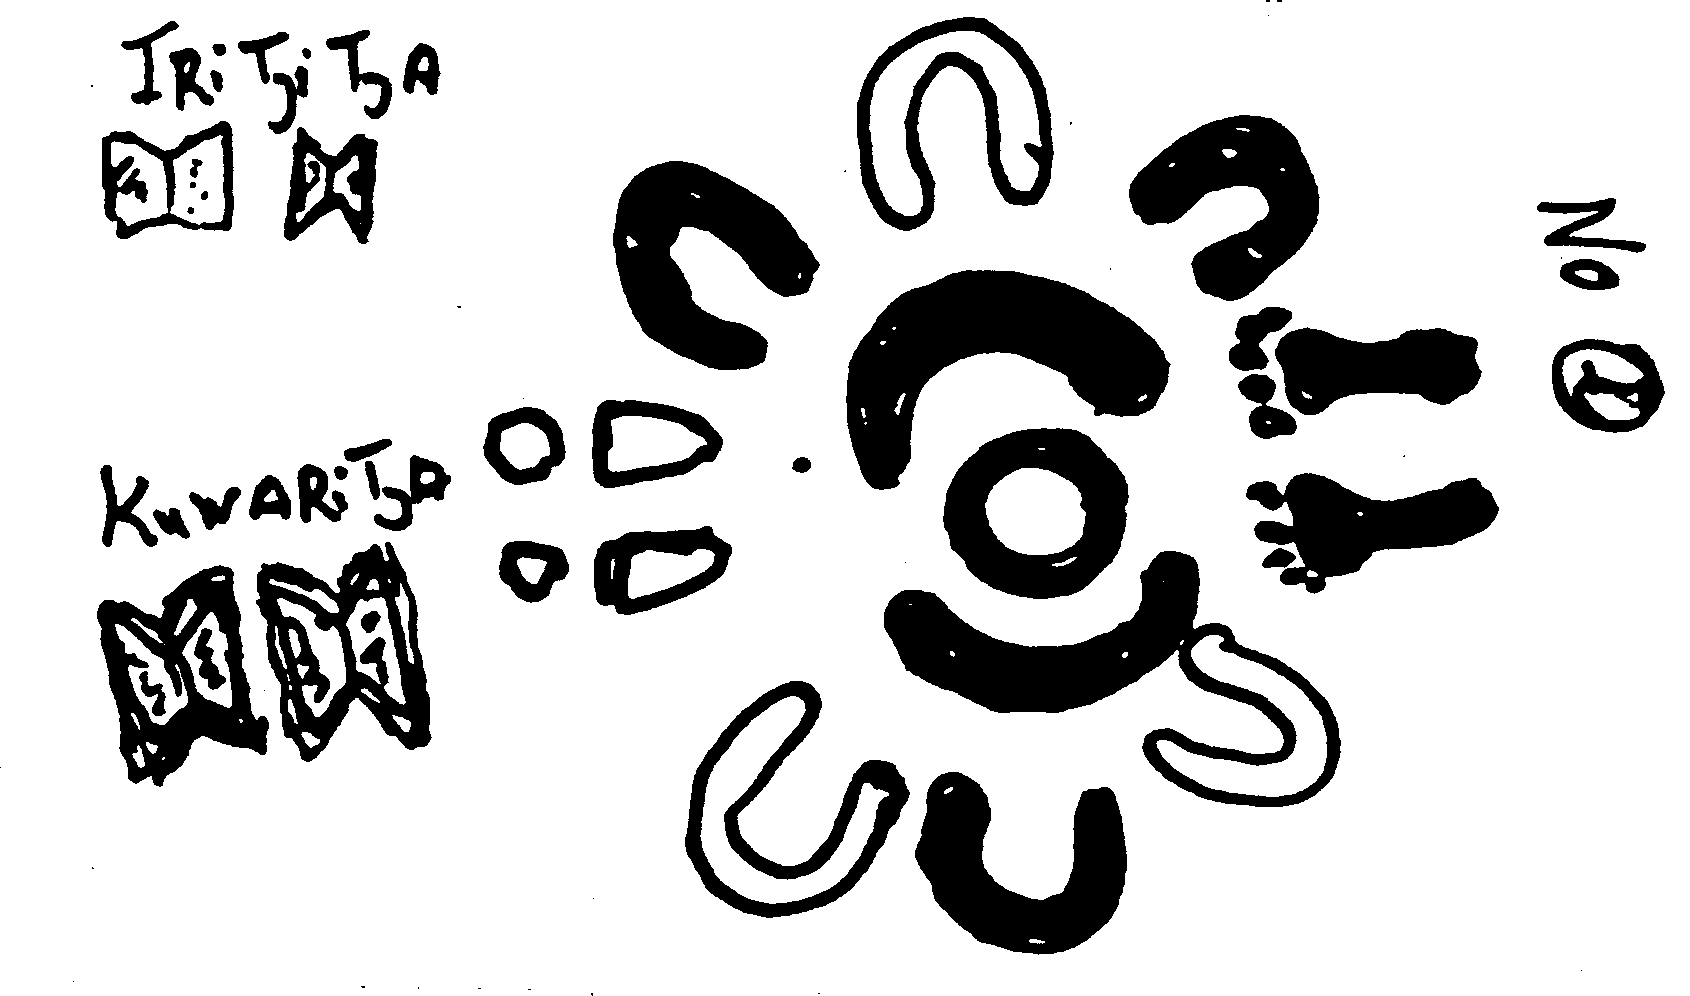 IRiTjiTjA
KuwARiTjA
No I